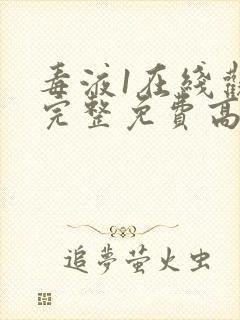 毒液1在线觀
完整免費高
追夢萤火虫